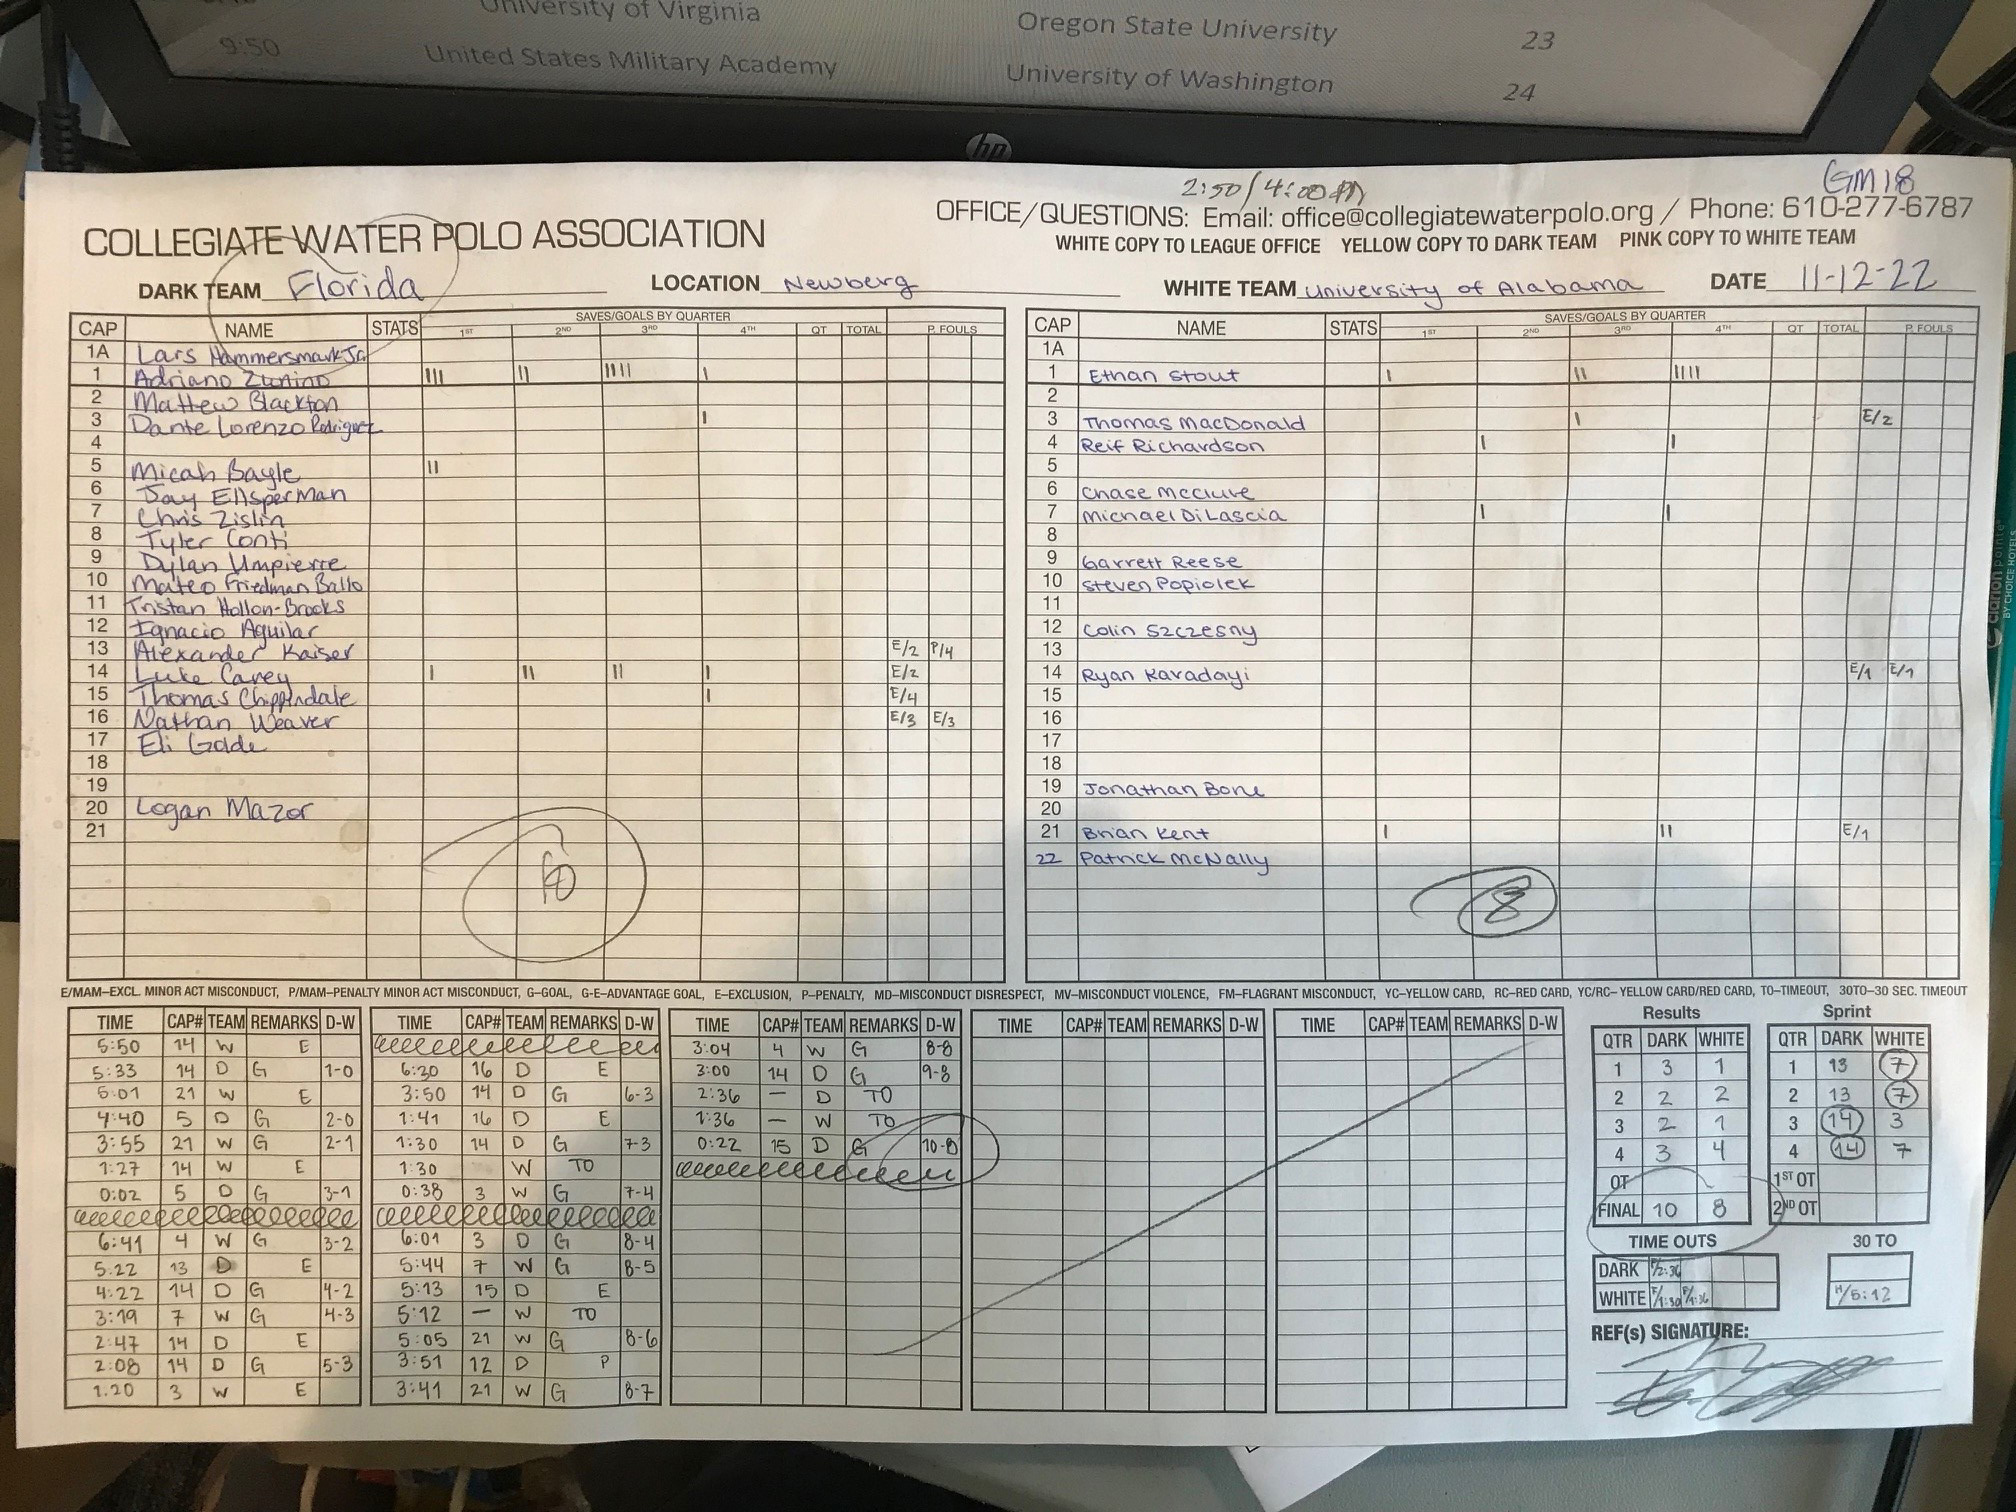 University of Virginia Oregon State University 23
9:50 United States Military Academy University of Washington 24
hp
2:50/4:00 PM GM18
COLLEGIATE WATER POLO ASSOCIATION OFFICE/QUESTIONS: Email: office@collegiatewaterpolo.org / Phone: 610-277-6787
WHITE COPY TO LEAGUE OFFICE YELLOW COPY TO DARK TEAM PINK COPY TO WHITE TEAM
DARK TEAM Florida LOCATION Newberg WHITE TEAM University of Alabama DATE 11-12-22
CAP NAME STATS SAVES/GOALS BY QUARTER 1ST 2ND 3RD 4TH QT TOTAL P. FOULS
1A Lars Hammersmark Jr
1 Adriano Zunino III II IIII I
2 Mathew Blackton
3 Dante Lorenzo Rodriguez I
4
5 Micah Bayle II
6 Jay Ellsperman
7 Chris Zislin
8 Tyler Conti
9 Dylan Umpierre
10 Mateo Friedman Ballo
11 Tristan Hollon-Brooks
12 Ignacio Aguilar
13 Alexander Kaiser E/2 P/4
14 Luke Carey I II II I E/2
15 Thomas Chippendale I E/4
16 Nathan Weaver E/3 E/3
17 Eli Gade
18
19
20 Logan Mazor
21
10
CAP NAME STATS SAVES/GOALS BY QUARTER 1ST 2ND 3RD 4TH QT TOTAL P. FOULS
1A
1 Ethan Stout I II IIII
2
3 Thomas MacDonald I E/2
4 Reif Richardson I I
5
6 Chase McClure
7 Michael DiLascia I I
8
9 Garrett Reese
10 Steven Popiolek
11
12 Colin Szczesny
13
14 Ryan Karadayi E/1 E/1
15
16
17
18
19 Jonathan Bone
20
21 Brian Kent I II E/1
22 Patrick McNally
8
E/MAM–EXCL. MINOR ACT MISCONDUCT, P/MAM–PENALTY MINOR ACT MISCONDUCT, G–GOAL, G-E–ADVANTAGE GOAL, E–EXCLUSION, P–PENALTY, MD–MISCONDUCT DISRESPECT, MV–MISCONDUCT VIOLENCE, FM–FLAGRANT MISCONDUCT, YC–YELLOW CARD, RC–RED CARD, YC/RC–YELLOW CARD/RED CARD, TO–TIMEOUT, 30TO–30 SEC. TIMEOUT
TIME CAP# TEAM REMARKS D-W
5:50 14 W E
5:33 14 D G 1-0
5:01 21 W E
4:40 5 D G 2-0
3:55 21 W G 2-1
1:27 14 W E
0:02 5 D G 3-1
6:41 4 W G 3-2
5:22 13 D E
4:22 14 D G 4-2
3:19 7 W G 4-3
2:47 14 D E
2:08 14 D G 5-3
1:20 3 W E
TIME CAP# TEAM REMARKS D-W
6:30 16 D E
3:50 14 D G 6-3
1:41 16 D E
1:30 14 D G 7-3
1:30 W TO
0:38 3 W G 7-4
6:01 3 D G 8-4
5:44 7 W G 8-5
5:13 15 D E
5:12 – W TO
5:05 21 W G 8-6
3:51 12 D P
3:41 21 W G 8-7
TIME CAP# TEAM REMARKS D-W
3:04 4 W G 8-8
3:00 14 D G 9-8
2:36 – D TO
1:36 – W TO
0:22 15 D G 10-8
TIME CAP# TEAM REMARKS D-W
TIME CAP# TEAM REMARKS D-W
Results
QTR DARK WHITE
1 3 1
2 2 2
3 2 1
4 3 4
OT
FINAL 10 8
Sprint
QTR DARK WHITE
1 13 7
2 13 7
3 14 3
4 14 7
1ST OT
2ND OT
TIME OUTS
DARK F/2:36
WHITE F/1:30 F/1:36
30 TO
H/5:12
REF(s) SIGNATURE:
clarion pointe
BY CHOICE HOTELS